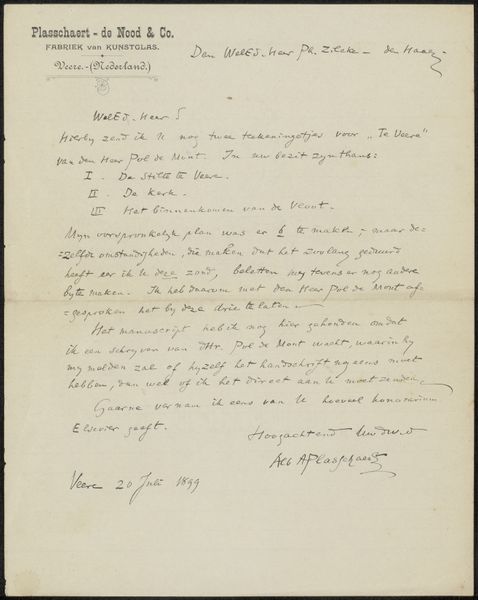 Plasschaert - de Nood & Co.
FABRIEK van KUNSTGLAS.
Veere.-(Nederland.)
Den WelEd. Heer Ph. Zilcke - den Haag -
WelEd. Heer
Hierby zend ik U nog twee teekeningetjes voor „Te Veere"
van den Heer Pol de Mont. In uw bezit zyn thans:
I . De Stilte te Veere.
II . De Kerk .
III Het binnenkomen van de Vloot.
Myn oorspronkelyk plan was er 6 te maken ; - maar de-
=zelfde omstandigheden, die maken dat het zoolang geduurd
heeft eer ik U deze zond, beletten my tevens er nog andere
by te maken. Ik heb daarom met den Heer Pol de Mont af=
=gesproken het by deze drie te laten -
Het manuscript heb ik nog hier gehouden omdat
ik een schryven van Dhr. Pol de Mont wacht, waarin hy
my melden zal of hyzelf het handschrift nog eens moet
hebben, dan wel of ik het direct aan U moet zenden.
Gaarne vernam ik eens van U hoeveel honorarium
Elsevier geeft.
Hoogachtend Uw dw.d
Alb A Plasschaert
Veere 20 Juli 1899